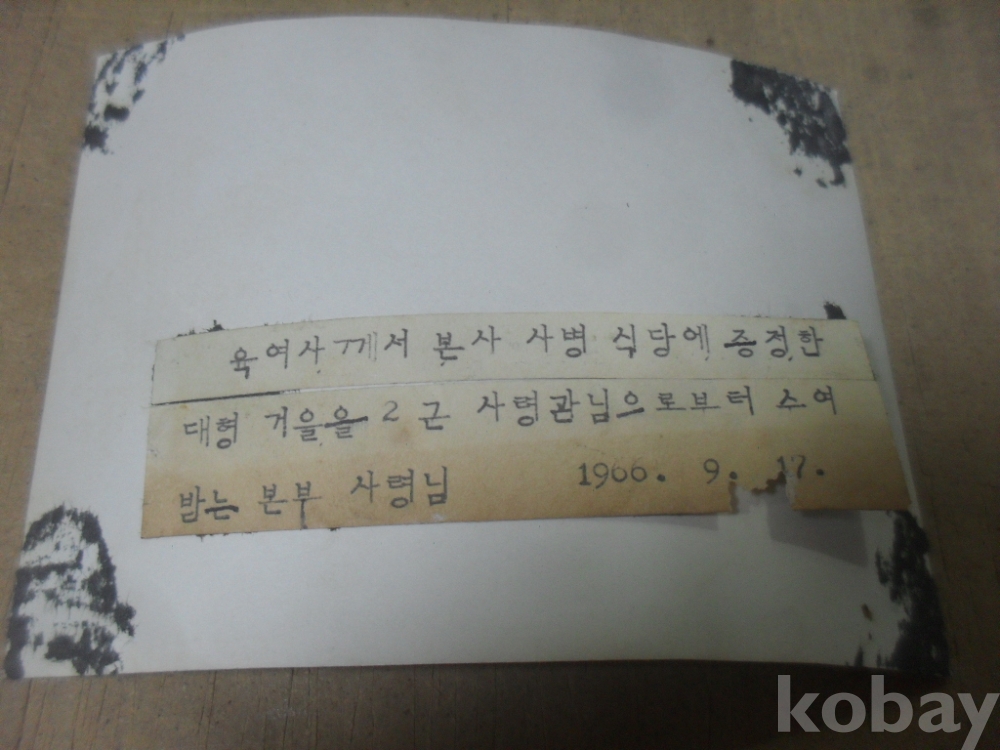 육여사께서 본사 사병 식당에 증정한
대형 거울을 2군 사령관님으로부터 수여
받는 본부 사령님 1966. 9. 17.
kobay